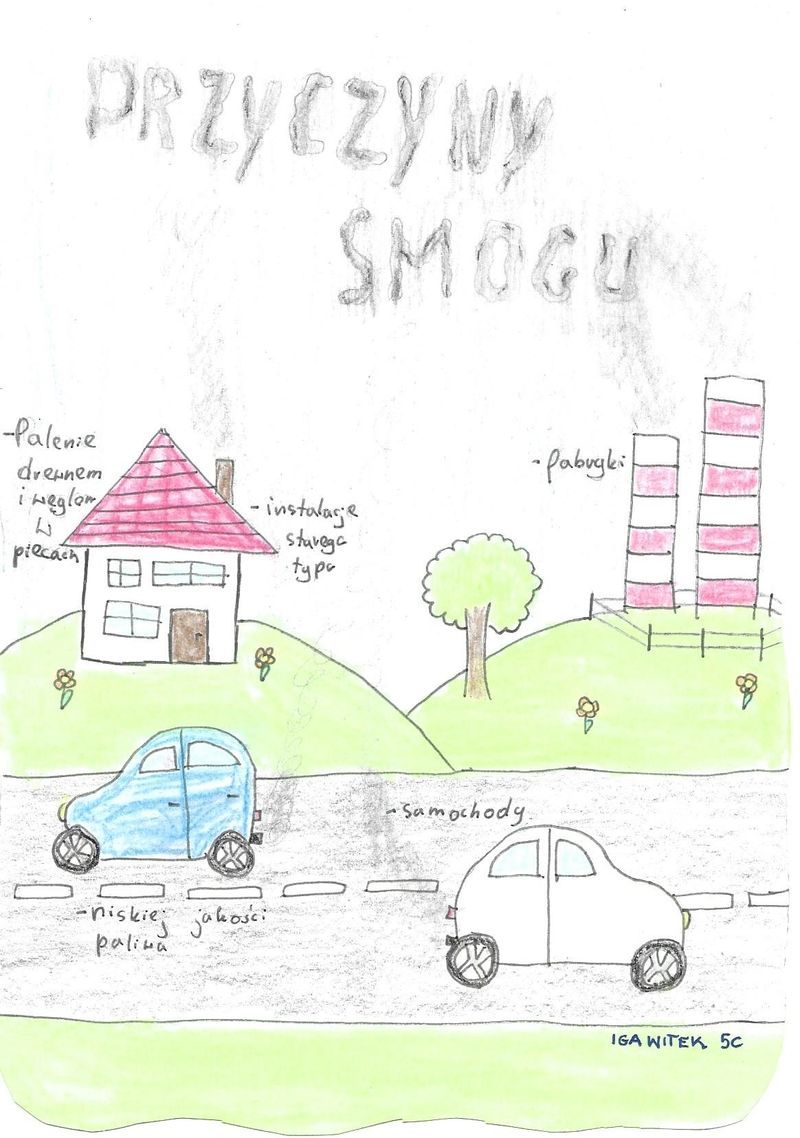 PRZYCZYNY
SMOGU
-Palenie
drewnem
i węglem
w
piecach
-instalacje
starego
typu
-fabryki
-samochody
-niskiej jakości
paliwa
IGA WITEK 5C